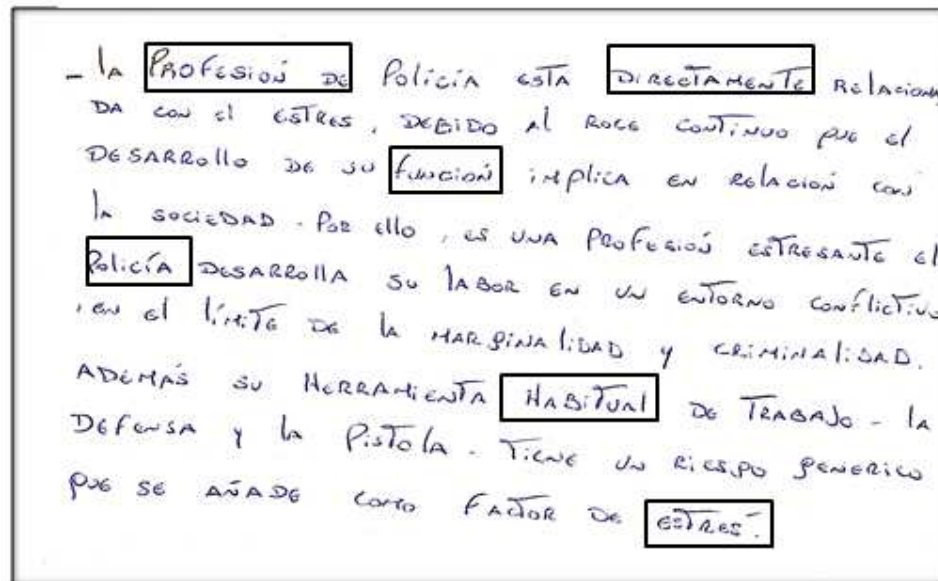 - la Profesión de Policía esta directamente relaciona
da con el estres, debido al roce continuo que el
desarrollo de su función implica en relación con
la sociedad. Por ello, es una profesión estresante el
Policía desarrolla su labor en un entorno conflictivo
, en el límite de la marginalidad y criminalidad.
Además su herramienta habitual de trabajo - la
defensa y la pistola - tiene un riesgo generico
que se añade como factor de estrés.